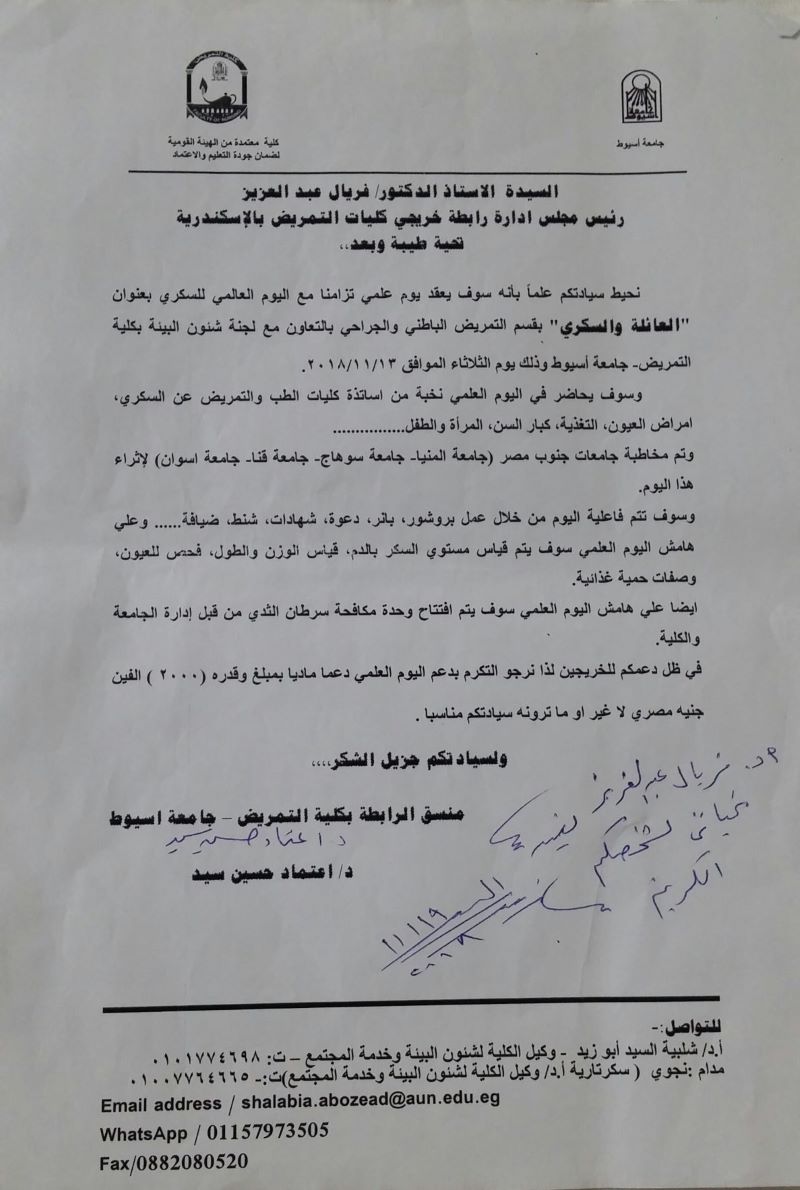 كلية معتمدة من الهيئة القومية
لضمان جودة التعليم والاعتماد
جامعة أسيوط
السيدة الاستاذ الدكتور/ فريال عبد العزيز
رئيس مجلس ادارة رابطة خريجي كليات التمريض بالإسكندرية
تحية طيبة وبعد،،
نحيط سيادتكم علماً بأنه سوف يعقد يوم علمي تزامنا مع اليوم العالمي للسكري بعنوان
"العائلة والسكري" بقسم التمريض الباطني والجراحي بالتعاون مع لجنة شئون البيئة بكلية
التمريض- جامعة أسيوط وذلك يوم الثلاثاء الموافق ٢٠١٨/١١/١٣.
وسوف يحاضر في اليوم العلمي نخبة من اساتذة كليات الطب والتمريض عن السكري،
امراض العيون، التغذية، كبار السن، المرأة والطفل................
وتم مخاطبة جامعات جنوب مصر (جامعة المنيا- جامعة سوهاج- جامعة قنا- جامعة اسوان) لإثراء
هذا اليوم.
وسوف تتم فاعلية اليوم من خلال عمل بروشور، بانر، دعوة، شهادات، شنط، ضيافة...... وعلي
هامش اليوم العلمي سوف يتم قياس مستوي السكر بالدم، قياس الوزن والطول، فحص للعيون،
وصفات حمية غذائية.
ايضا علي هامش اليوم العلمي سوف يتم افتتاح وحدة مكافحة سرطان الثدي من قبل إدارة الجامعة
والكلية.
في ظل دعمكم للخريجين لذا نرجو التكرم بدعم اليوم العلمي دعما ماديا بمبلغ وقدره (٢٠٠٠ ) الفين
جنيه مصري لا غير او ما ترونه سيادتكم مناسبا .
ولسيادتكم جزيل الشكر،،،،
منسق الرابطة بكلية التمريض – جامعة اسيوط
د اعتماد حسين سيد
د/ اعتماد حسين سيد
د. فريال عبدالعزيز
تحياتى لشخصكم
الكريم
للتواصل:-
أ.د/ شلبية السيد أبو زيد - وكيل الكلية لشئون البيئة وخدمة المجتمع – ت: ٠١٠١٧٧٤٦٩٨
مدام :نجوي ( سكرتارية أ.د/ وكيل الكلية لشئون البيئة وخدمة المجتمع)ت:- ٠١٠٠٧٧٦٤٦٦٥
Email address / shalabia.abozead@aun.edu.eg
WhatsApp / 01157973505
Fax/0882080520